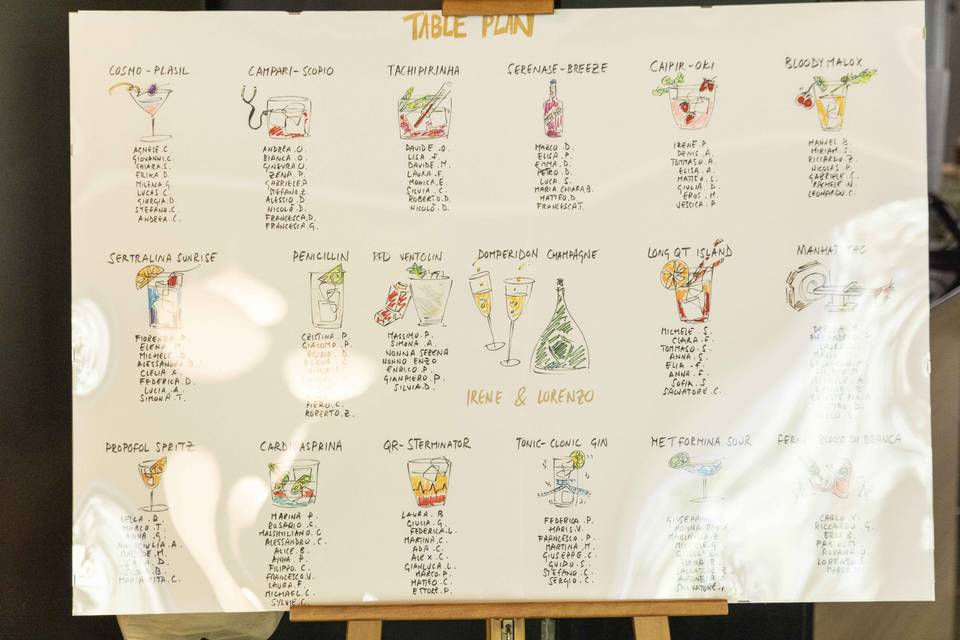 TABLE PLAN
COSMO-PLASIL
AGNESE.C.
GIOVANNI.C.
CHIARA.S.
ERIKA.D.
MILENA.G
LUCAS.C.
GIORGIA.D
STEFANO.C
ANDREA.C.
CAMPARI-SCOPIO
ANDREA.O.
BIANCA.O.
GINEVRA.O
ZENA.D.
GABRIELE.P
STEFANO.Z
ALESSIO.D.
NICOLÒ.D.
FRANCESCA.D.
FRANCESCA.G.
TACHIPIRINHA
DAVIDE.O.
LISA.F.
DAVIDE.M.
LAURA.F.
MONICA.E.
SILVIA.C.
ROBERTO.D.
NICOLÒ.D.
SERENASE-BREEZE
MARCO.D.
ELISA.P.
EMMA.D.
PETRO.D.
LUCA.S.
MARIA CHIARA.B.
MATTEO.D
FRANCESCA.T.
CAIPIR-OKI
IRENE.P.
DENIS.A.
TOMMASO.A.
ELISA.A.
MATTEO.L.
GIULIA.D.
EROS.M.
JESSICA.P
BLOODY MALOX
MANUEL.B.
MIRIAM.S.
RICCARDO.Z
NICOLAS.P.
GABRIELE.C.
RACHELE.N.
LEONARDO.C.
SERTRALINA SUNRISE
FIORENZA
ELENA
MICHELE
ALESSANDRO
CLELIA
FEDERICA.D.
LUCIA.A.
SIMONA.T.
PENICILLIN
CRISTINA.P.
GIACOMO.P.
PIERO.C.
ROBERTO.Z.
RED VENTOLIN
MASSIMO.P.
SIMONA.A.
NONNA SERENA
NONNO ENZO
ENRICO.P.
GIANPIERO.P.
SILVIA.D.
DOMPERIDON CHAMPAGNE
IRENE & LORENZO
LONG QT ISLAND
MICHELE.S.
CLARA.F.
TOMMASO.S.
ANNA.S.
ELIA.F.
ANNA.F.
SOFIA.S
SALVATORE.C.
MANHAT TAC
PROPOFOL SPRITZ
LELLA.R.
MARCO.T.
ANNA.G.
MARIA RITA.C.
CARDIOASPRINA
MARINA.P.
ROSARIO.C.
MASSIMILIANO.C
ALESSANDRO.C.
ALICE.B.
ANNA.P.
FILIPPO.C.
FRANCESCO.V.
LAURA.F.
MICHAEL.C.
SYLVIE.C.
QR-STERMINATOR
LAURA.B
GIULIA.G.
FEDERICA.L.
MARTINA.C.
ADA.C.
ALEX.C.
GIANLUCA.L.
MARCO.P.
MATTEO.C.
ETTORE.P.
TONIC-CLONIC GIN
FEDERICA.P.
MARIS.V.
FRANCESCO.P.
MARTINA.M.
GIUSEPPE.C.
GUIDO.S.
STEFANO.C.
SERGIO.C.
METFORMINA SOUR
GIUSEPPINA
SALVATORE.P
FERNET BLOOD DI BRANCA
CARLO.V.
RICCARDO.G.
FABIO.M.
LORENZO.S